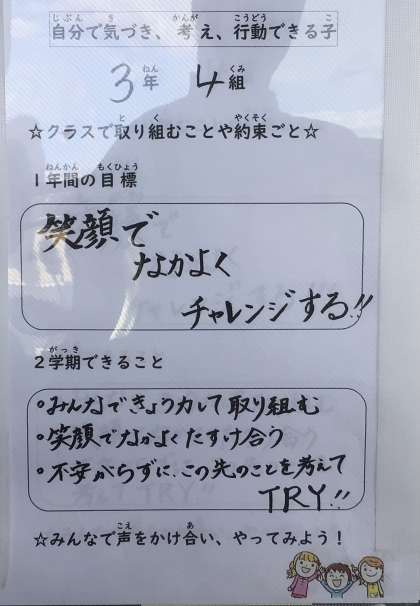 自分で気づき、考え、行動できる子
3年 4組
☆クラスで取り組むことや約束ごと☆
1年間の目標
笑顔で
なかよく
チャレンジする!!
2学期できること
・みんなできょう力して取り組む
・笑顔でなかよくたすけ合う
・不安がらずに、この先のことを考えて
TRY!!
☆みんなで声をかけ合い、やってみよう!